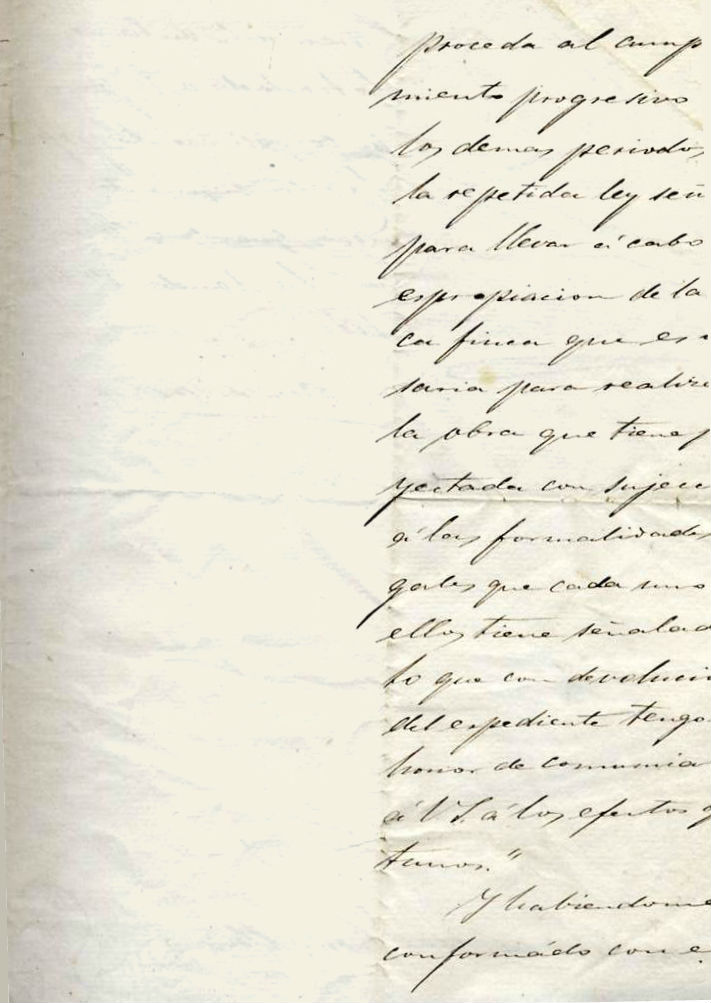 proceda al cump
miento progresivo
los demas periodos
la repetida ley señ
para llevar á cabo
espropiacion de la
ca finca que es n
saria para realiza
la obra que tiene p
yectada con sujecc
á las formalidades
gales que cada uno
ellos tiene señalad
lo que con devolució
del espediente tengo
honor de comunica
á V.S. á los efectos o
tunos."
Y habiendome
conformado con e